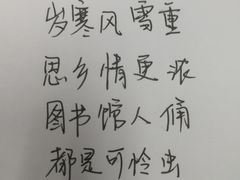 岁寒风雪重
思乡情更浓
图书馆人俑
都是可怜虫